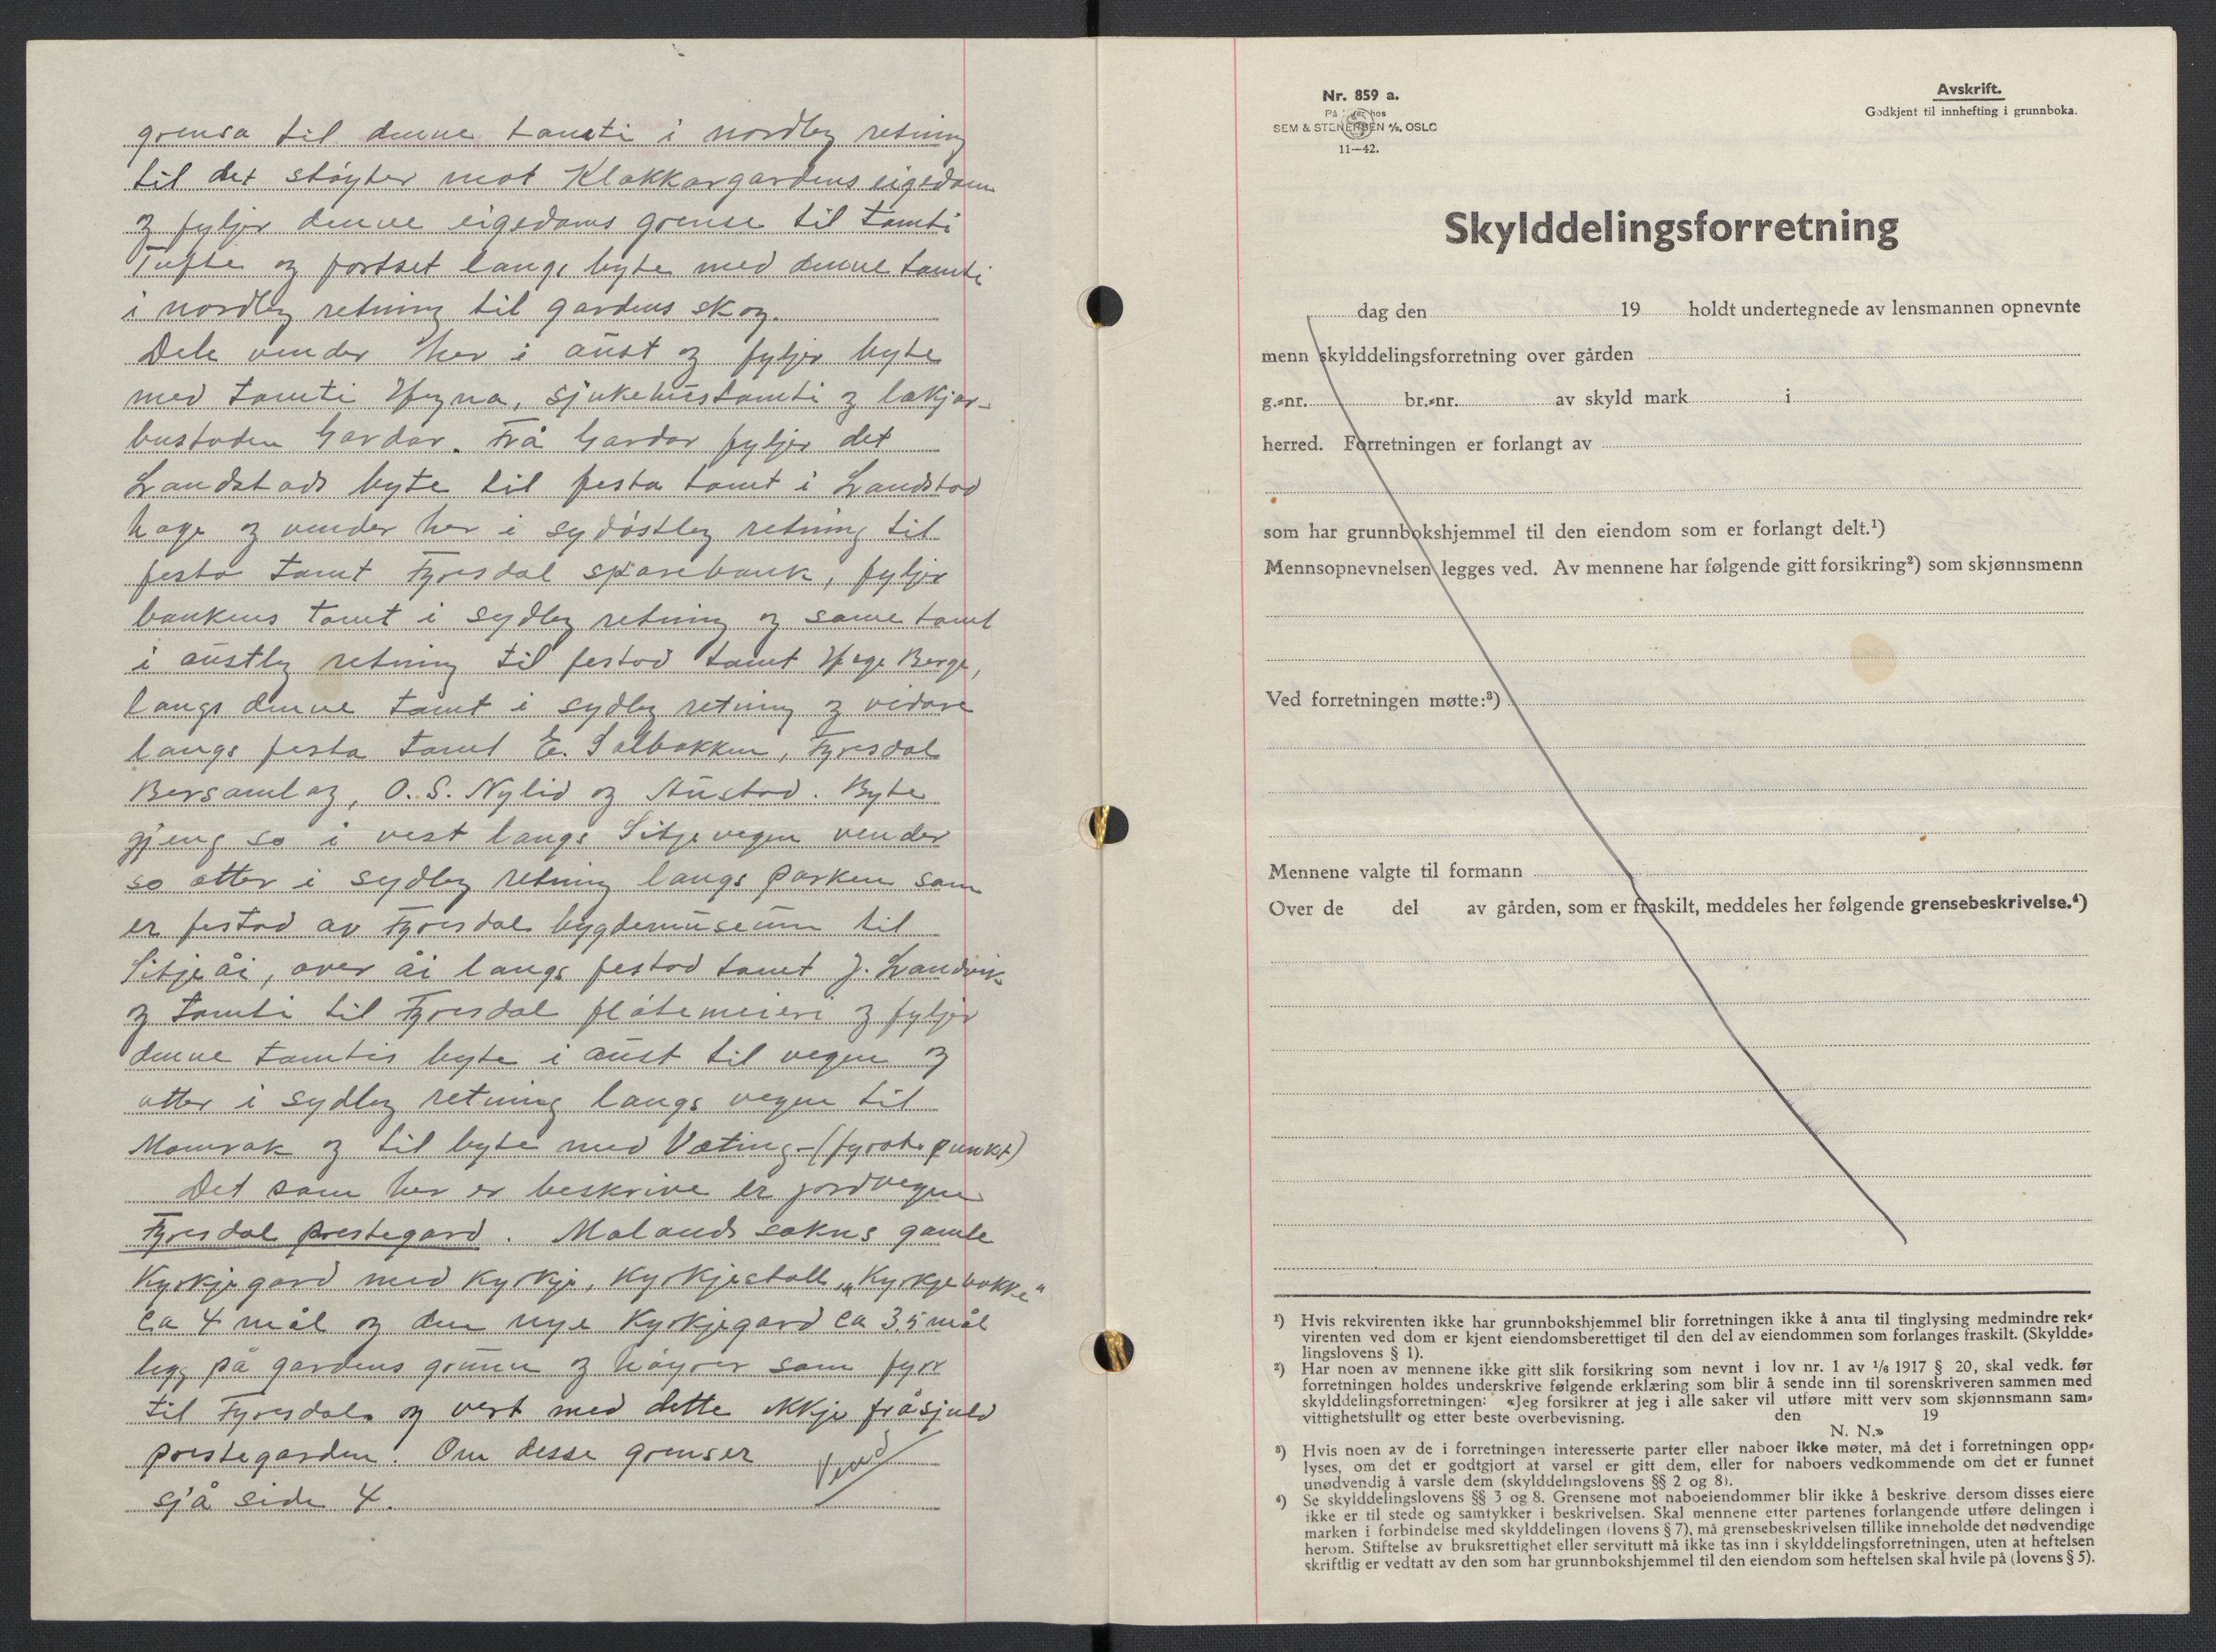 grensa til denne tomti i nordleg retning
til det støyter mot Klokkargardens eigedom
og fylgjer denne eigedoms grense til tomti
Tufte og fortset langs byte med denne tomti
i nordleg retning til gardens skog.
Dele vender her i aust og fylgjer byte
med tomti Høgna, sjukehustomti og lækjar-
bustaden Gardar. Frå Gardar fylgjer det
Landstads byte til festa tomt i Landstad
hage og vender her i sydøstleg retning til
festa tomt Fyresdal sparebank, fylgjer
bankens tomt i sydleg retning og same tomt
i austleg retning til festad tomt Hege Berge,
langs denne tomt i sydleg retning og vidare
langs festa tomt E. Solbakken, Fyresdal
Bersamlag, O. S. Nylid og Austad. Byte
gjeng so i vest langs Sitjevegen vender
so atter i sydleg retning langs parken som
er festad av Fyresdal bygdemuseum til
Sitjeåi, over åi langs festad tomt J. Landvik
og tomti til Fyresdal fløtemeieri og fylgjer
denne tomtis byte i aust til vegen og
atter i sydleg retning langs vegen til
Momrak og til byte med Væting-(fyrste punkt)
Det som her er beskrive er jordvegen
Fyresdal prestegard. Molands sokns gamle
Kyrkjegard med Kyrkje, Kyrkjestall „Kyrkjebakke“
ca 4 mål og den nye Kyrkjegard ca 3,5 mål
ligg på gardens grunn og høyrer som fyrr
til Fyresdal og vert med dette ikkje fråskild
prestegarden. Om desse grenser
sjå side 4. Vend
Nr. 859 a.
På lager hos
SEM & STENERSEN A/S, OSLO
11—42.
Avskrift.
Godkjent til innhefting i grunnboka.
Skylddelingsforretning
dag den 19 holdt undertegnede av lensmannen opnevnte
menn skylddelingsforretning over gården
g.-nr. br.-nr. av skyld mark i
herred. Forretningen er forlangt av
som har grunnbokshjemmel til den eiendom som er forlangt delt.¹)
Mennsopnevnelsen legges ved. Av mennene har følgende gitt forsikring²) som skjønnsmenn
Ved forretningen møtte:³)
Mennene valgte til formann
Over de del av gården, som er fraskilt, meddeles her følgende grensebeskrivelse.⁴)
¹) Hvis rekvirenten ikke har grunnbokshjemmel blir forretningen ikke å anta til tinglysing medmindre rek-
virenten ved dom er kjent eiendomsberettiget til den del av eiendommen som forlanges fraskilt. (Skyldde-
lingslovens § 1).
²) Har noen av mennene ikke gitt slik forsikring som nevnt i lov nr. 1 av 1/6 1917 § 20, skal vedk. før
forretningen holdes underskrive følgende erklæring som blir å sende inn til sorenskriveren sammen med
skylddelingsforretningen: «Jeg forsikrer at jeg i alle saker vil utføre mitt verv som skjønnsmann sam-
vittighetsfullt og etter beste overbevisning. den 19
N. N.»
³) Hvis noen av de i forretningen interesserte parter eller naboer ikke møter, må det i forretningen opp-
lyses, om det er godtgjort at varsel er gitt dem, eller for naboers vedkommende om det er funnet
unødvendig å varsle dem (skylddelingslovens §§ 2 og 8).
⁴) Se skylddelingslovens §§ 3 og 8. Grensene mot naboeiendommer blir ikke å beskrive dersom disses eiere
ikke er til stede og samtykker i beskrivelsen. Skal mennene etter partenes forlangende utføre delingen i
marken i forbindelse med skylddelingen (lovens § 7), må grensebeskrivelsen tillike inneholde det nødvendige
herom. Stiftelse av bruksrettighet eller servitutt må ikke tas inn i skylddelingsforretningen, uten at heftelsen
skriftlig er vedtatt av den som har grunnbokshjemmel til den eiendom som heftelsen skal hvile på (lovens § 5).